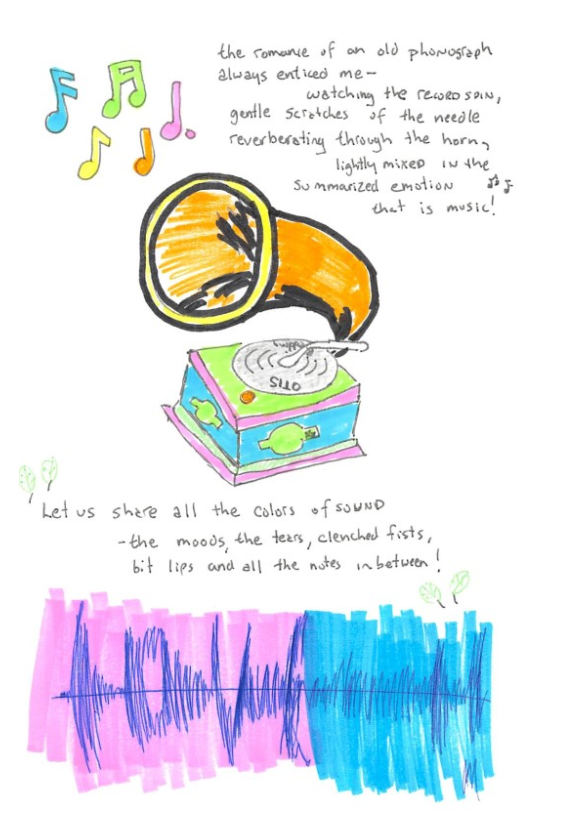 the romance of an old phonograph
always enticed me-
watching the record spin,
gentle scratches of the needle
reverberating through the horn,
lightly mixed in the
summarized emotion
that is music!
OTIS
Let us share all the colors of SOUND
-the moods, the tears, clenched fists,
bit lips and all the notes in between!